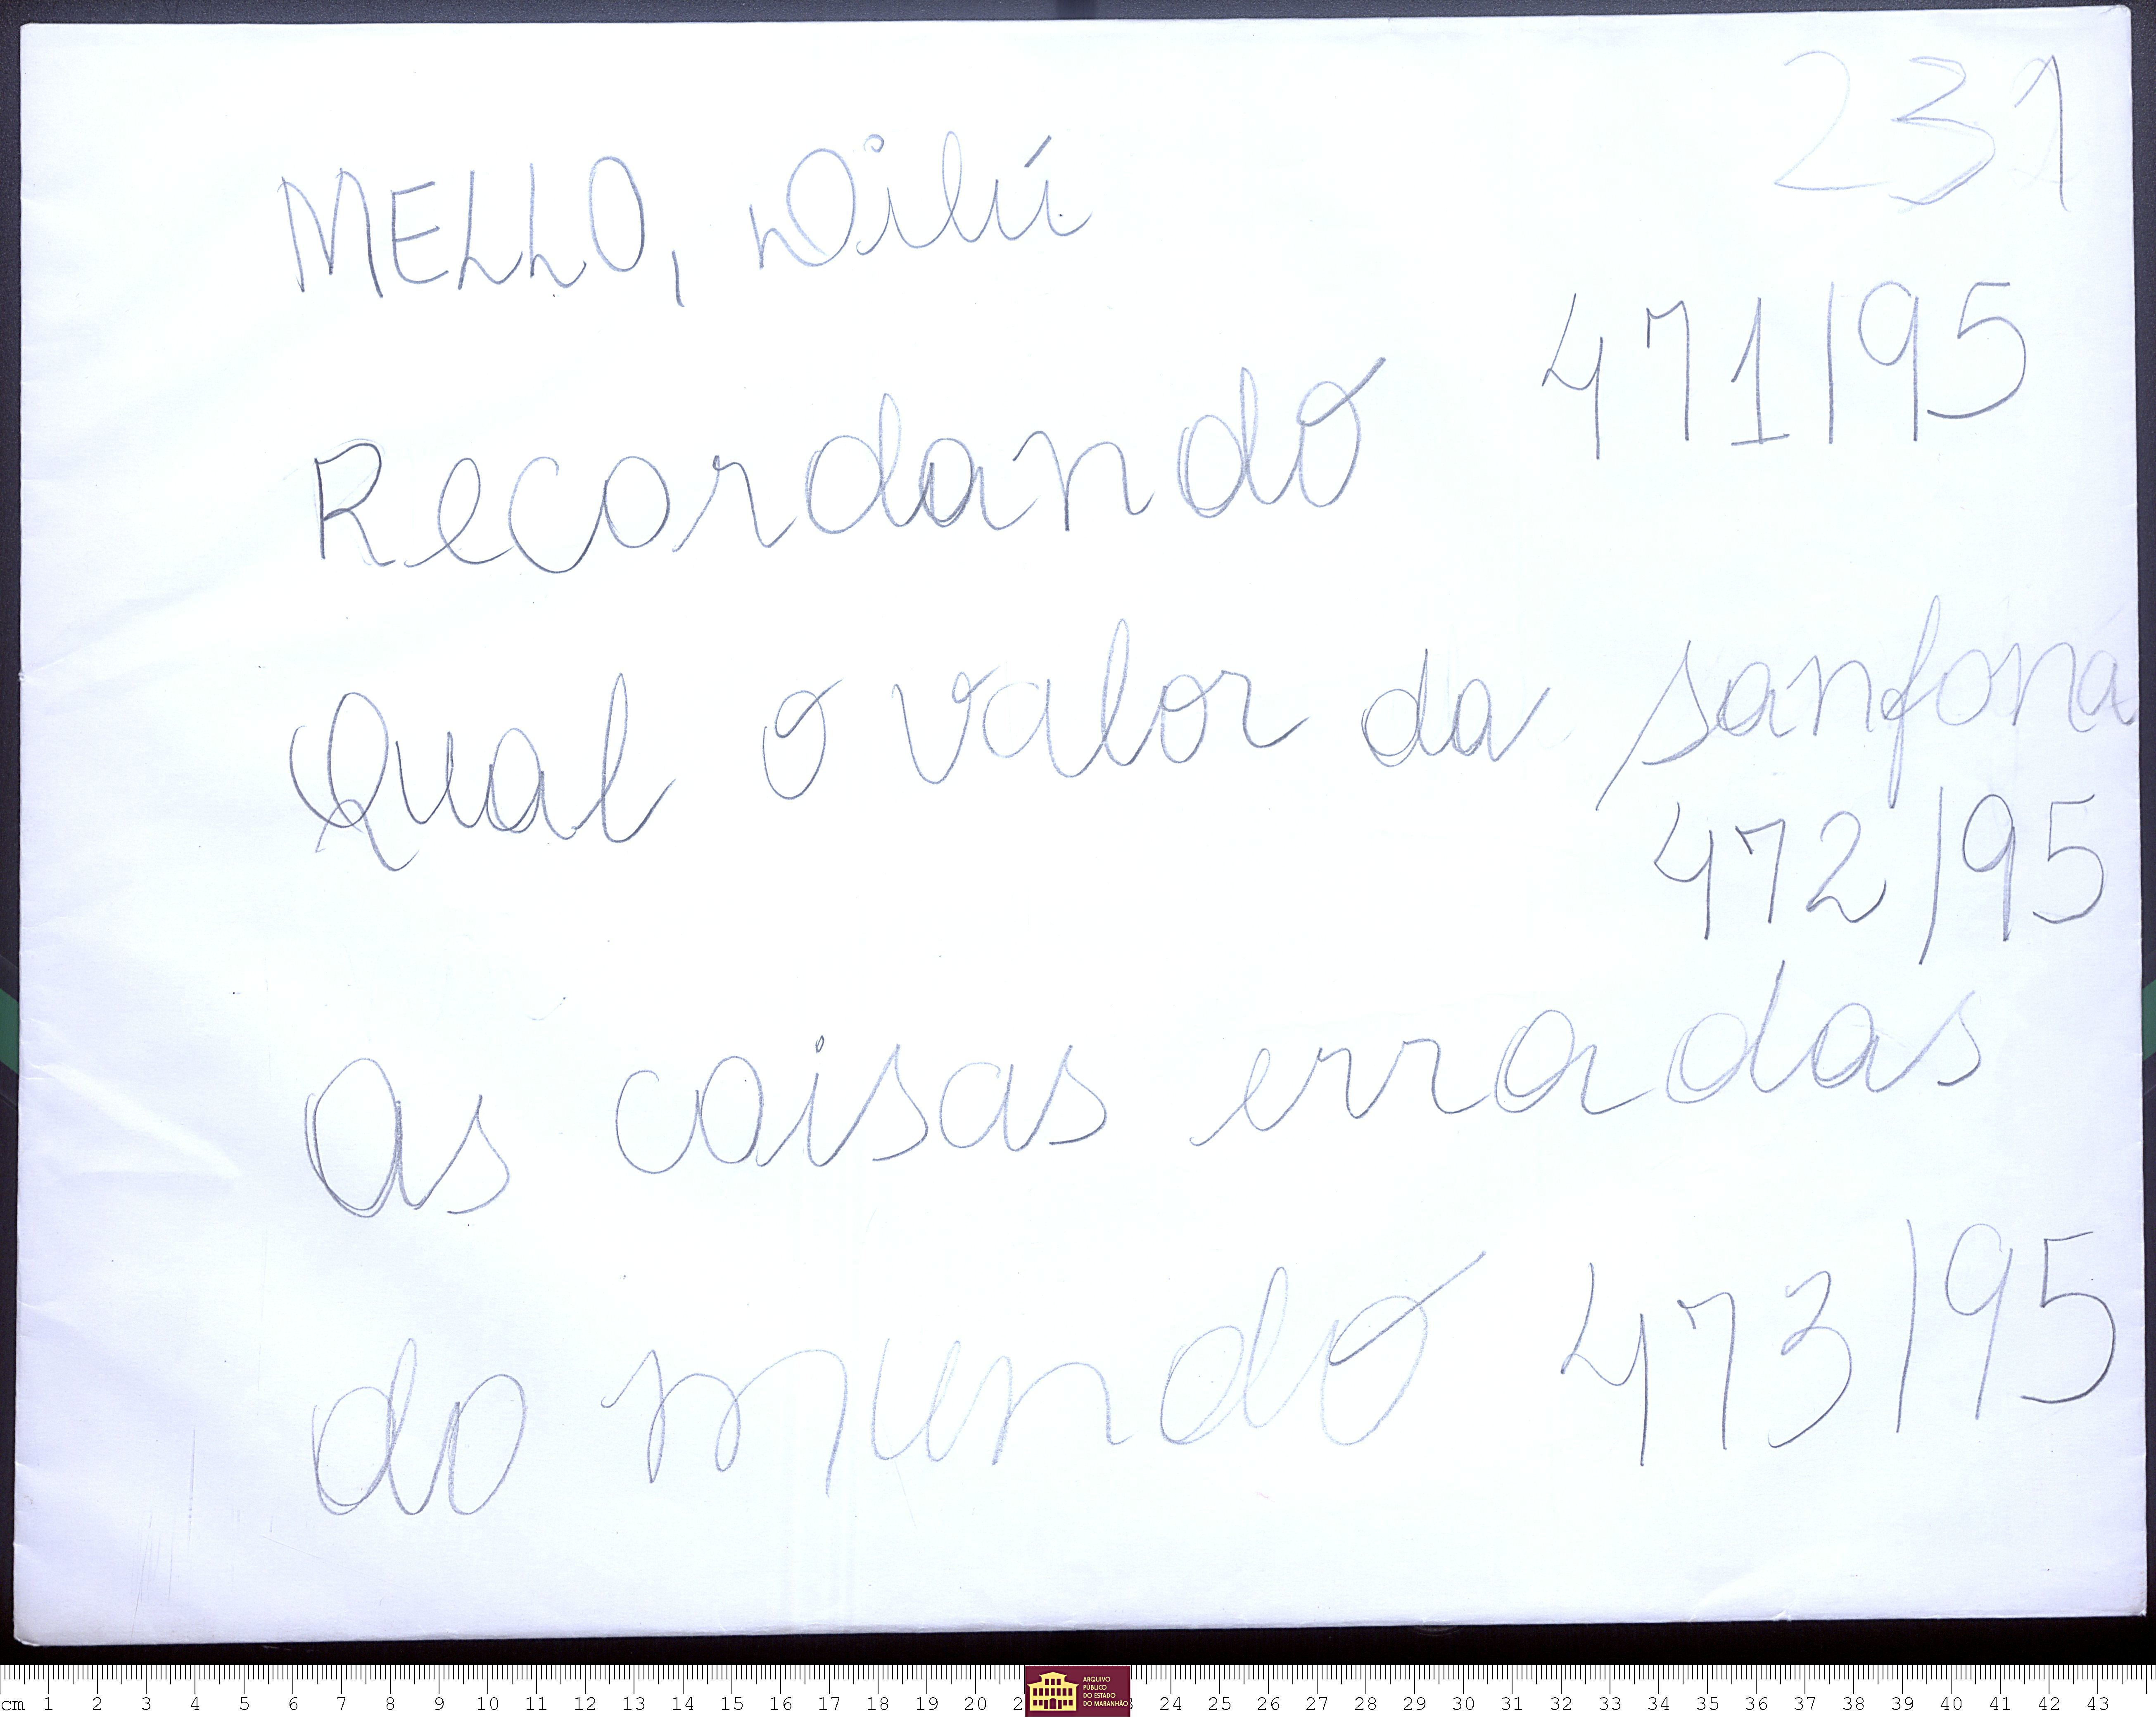 231
MELLO, Dilú
Recordando 471/95
Qual o valor da sanfona
472/95
As coisas erradas
do mundo 473/95
cm 1 2 3 4 5 6 7 8 9 10 11 12 13 14 15 16 17 18 19 20 2 3 24 25 26 27 28 29 30 31 32 33 34 35 36 37 38 39 40 41 42 43
ARQUIVO
PÚBLICO
DO ESTADO
DO MARANHÃO